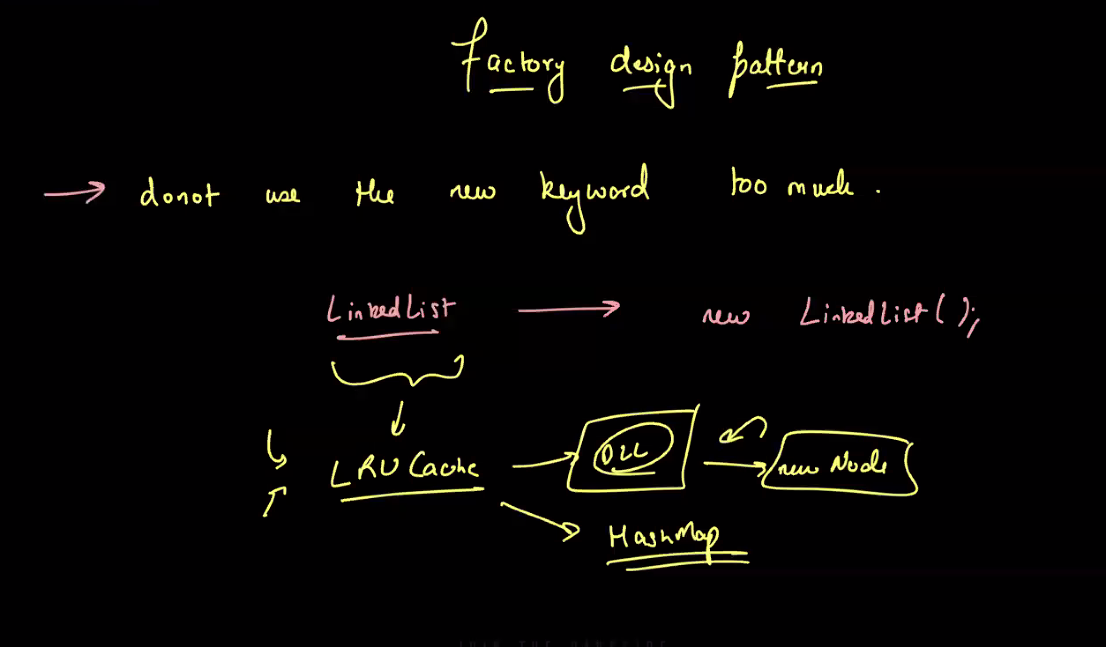 Factory design pattern
→ donot use the new keyword too much.
LinkedList → new LinkedList();
LRU Cache → DLL → new Node
HashMap